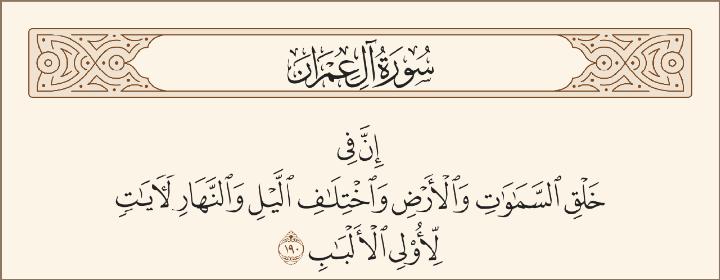 سُورَةُ آلِ عِمْرَان
إِنَّ فِى
خَلْقِ ٱلسَّمَـٰوَٰتِ وَٱلْأَرْضِ وَٱخْتِلَـٰفِ ٱلَّيْلِ وَٱلنَّهَارِ لَـَٔايَـٰتٍ
لِّأُو۟لِى ٱلْأَلْبَـٰبِ ١٩٠